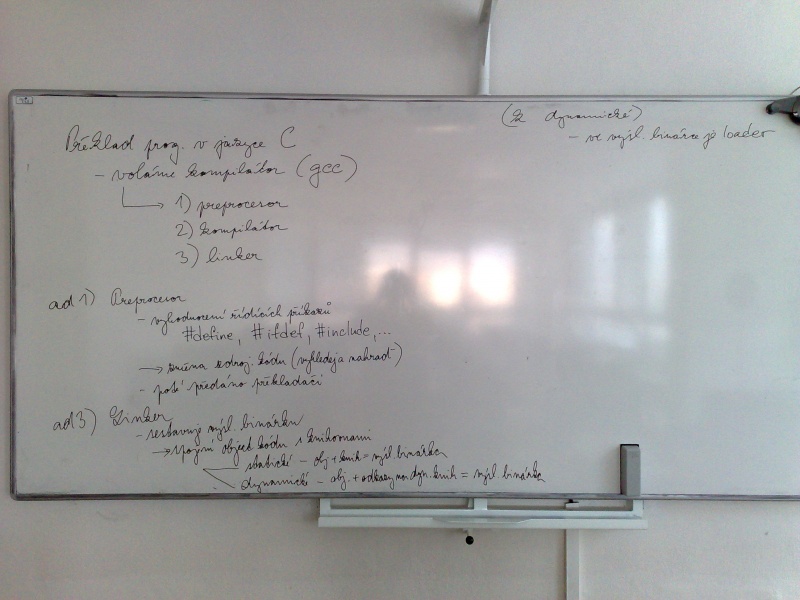 Překlad prog. v jazyce C
- voláme kompilátor (gcc)
1) preprocesor
2) kompilátor
3) linker
ad 1) Preprocesor
- vyhodnocení řídících příkazů
#define, #ifdef, #include,...
→ změna zdroj. kódu (vyhledej a nahraď)
- poté předáno překladači
ad 3) Linker
- sestavuje výsl. binárku
→ spojení object kódu s knihovnami
statické - obj + knih = výsl. binárka
dynamické - obj. + odkazy na dyn. knih = výsl. binárka
(k dynamické)
- ve výsl. binárce je loader